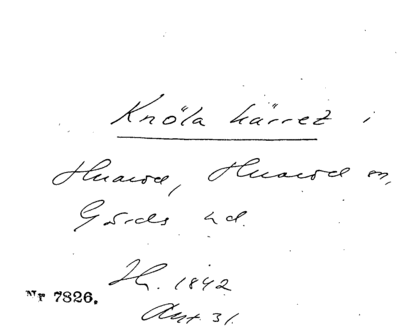 Knöla kärret i
Huaröd, Huaröd sn,
Gärds hd.
Hr. 1842
Akt 31.
Nr 7826.